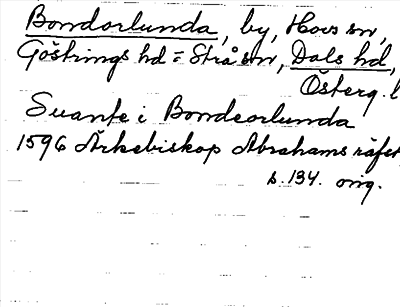 Bondorlunda, by, Hovs sn,
Göstrings hd = Strå sn, Dals hd,
Österg. l
Suante i Bondeorlunda
1596 Ärkebiskop Abrahams räfst
s. 134. orig.